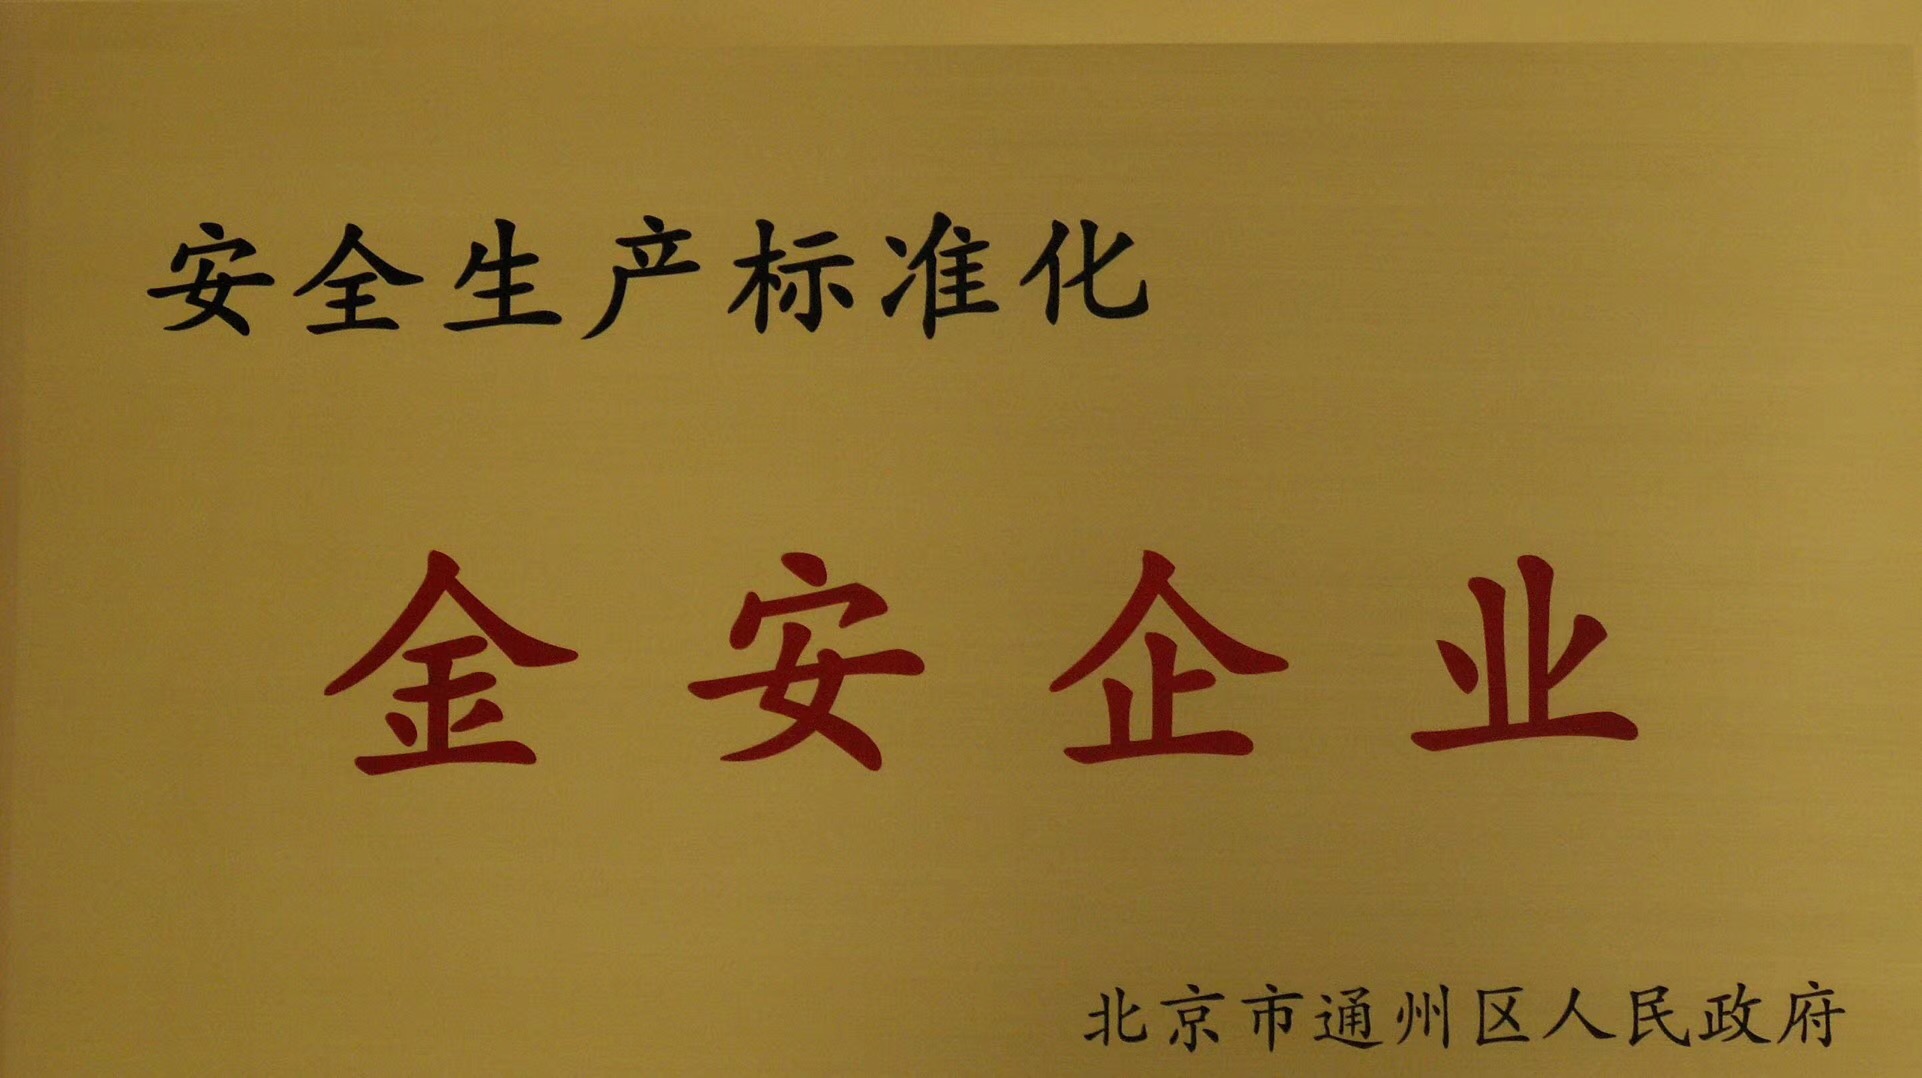 安全生产标准化
金安企业
北京市通州区人民政府